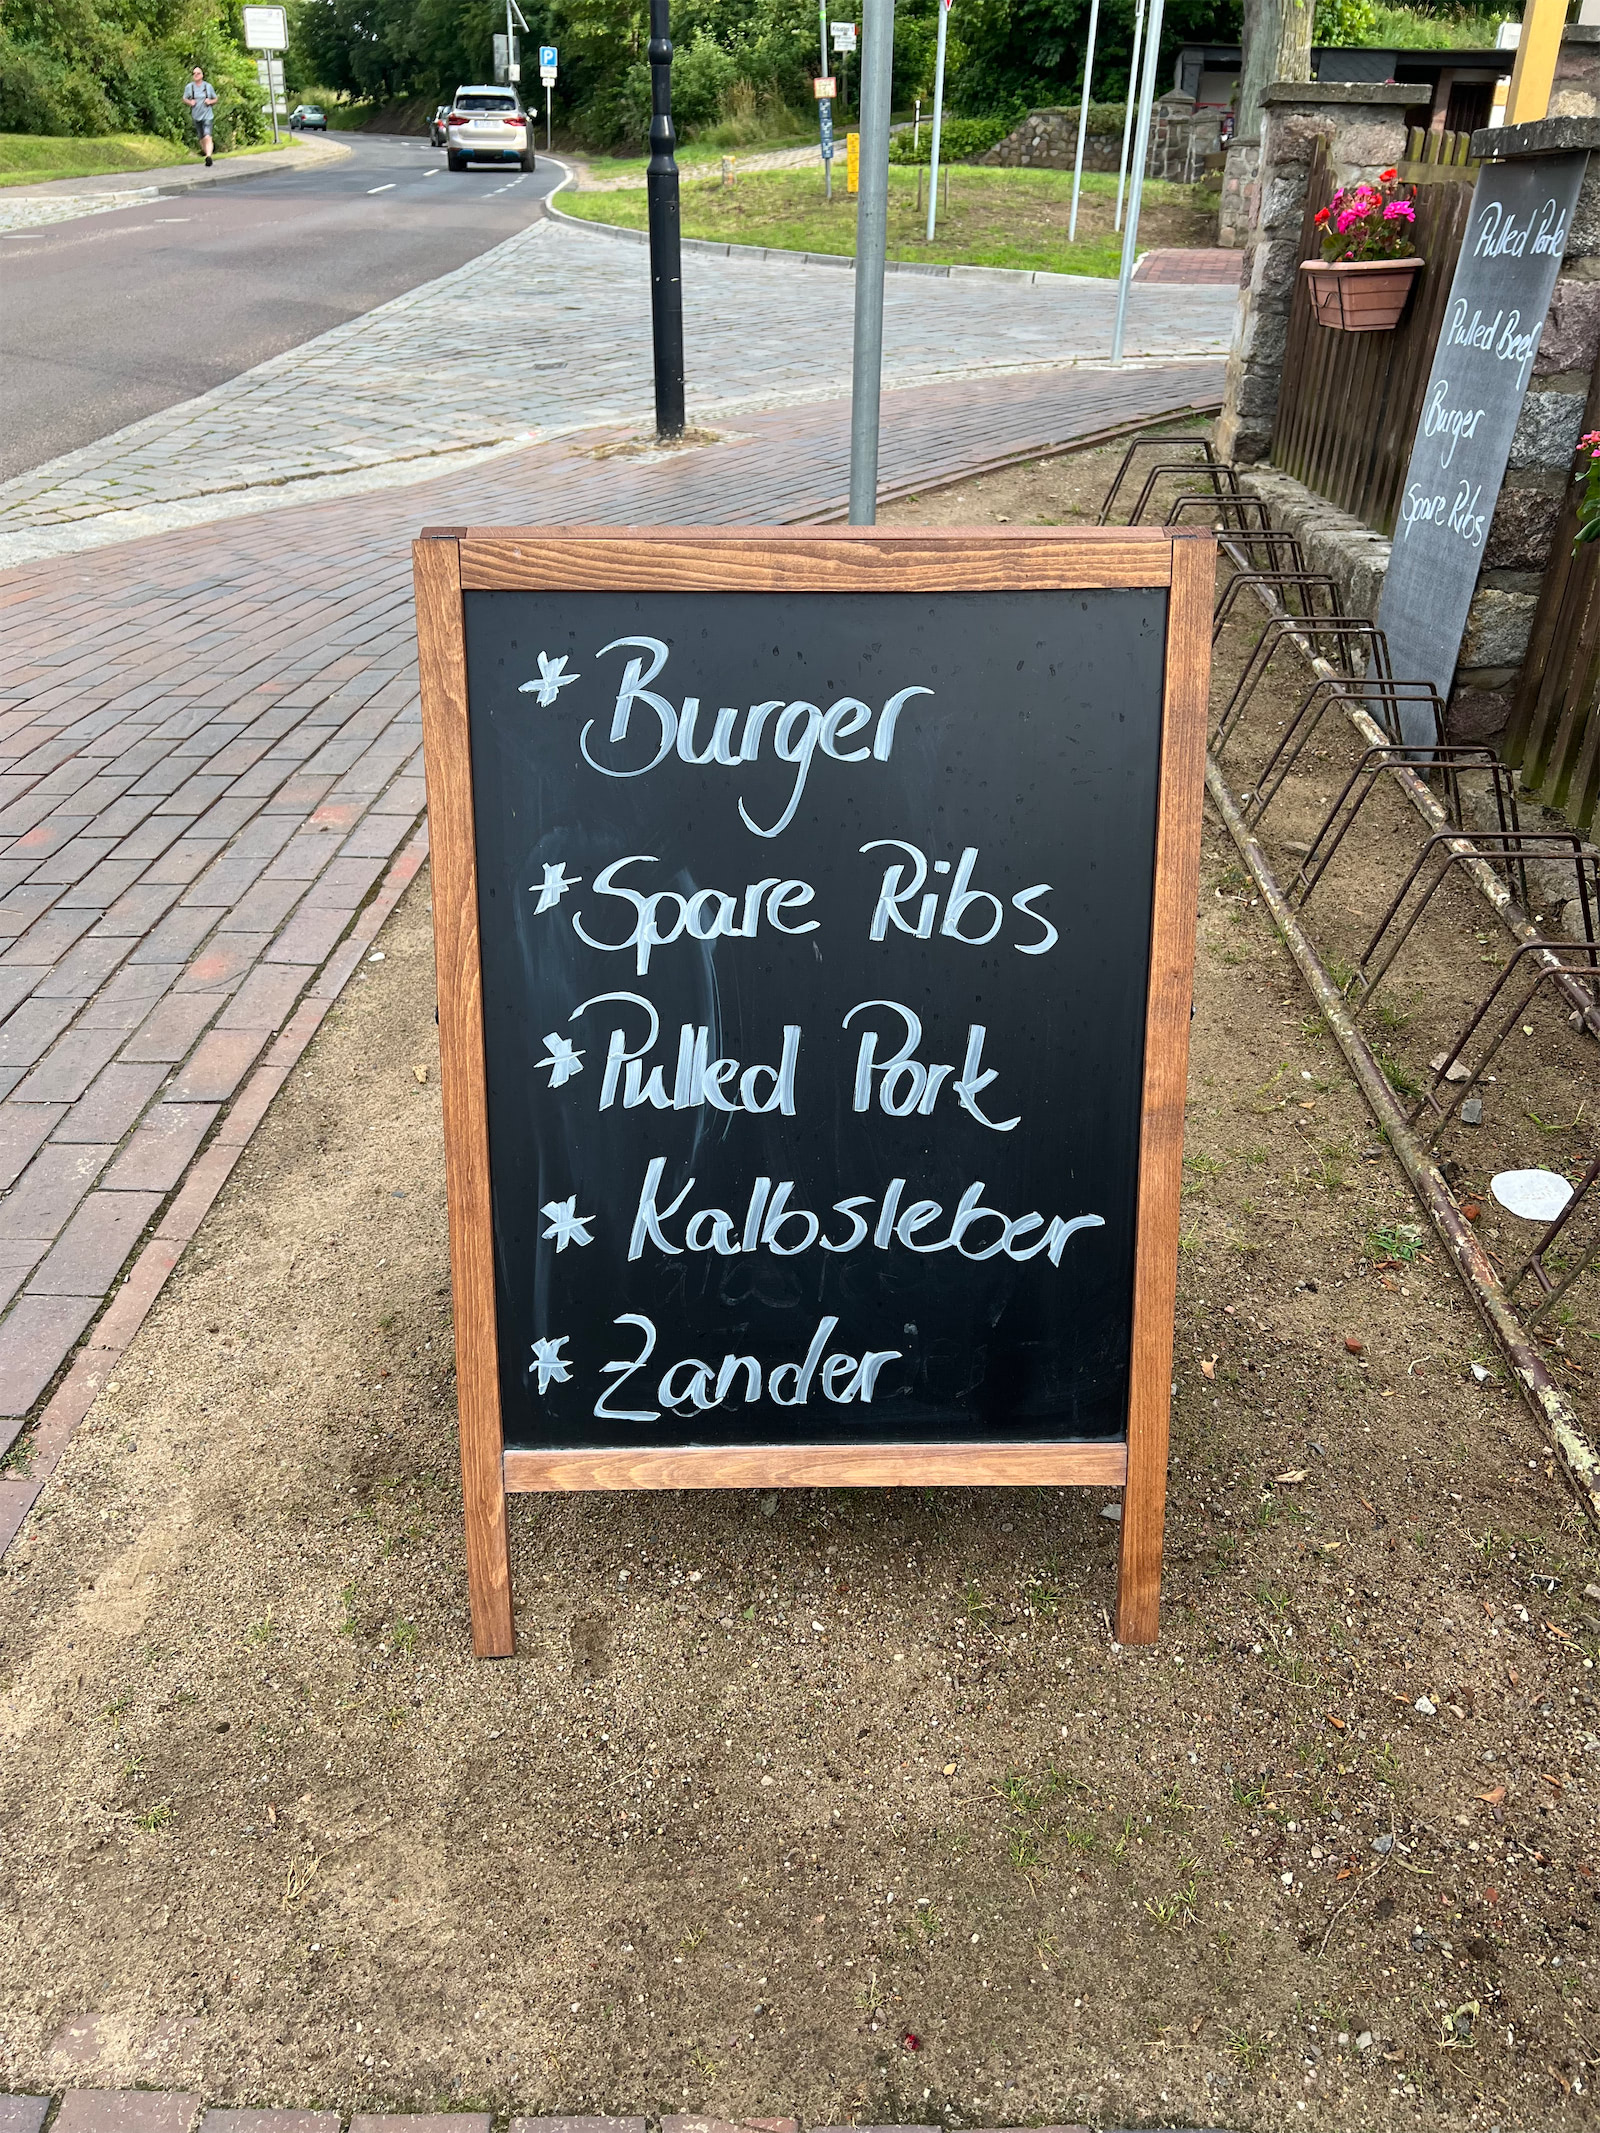 * Burger
* Spare Ribs
* Pulled Pork
* Kalbsleber
* Zander
Pulled Pork
Pulled Beef
Burger
Spare Ribs
P